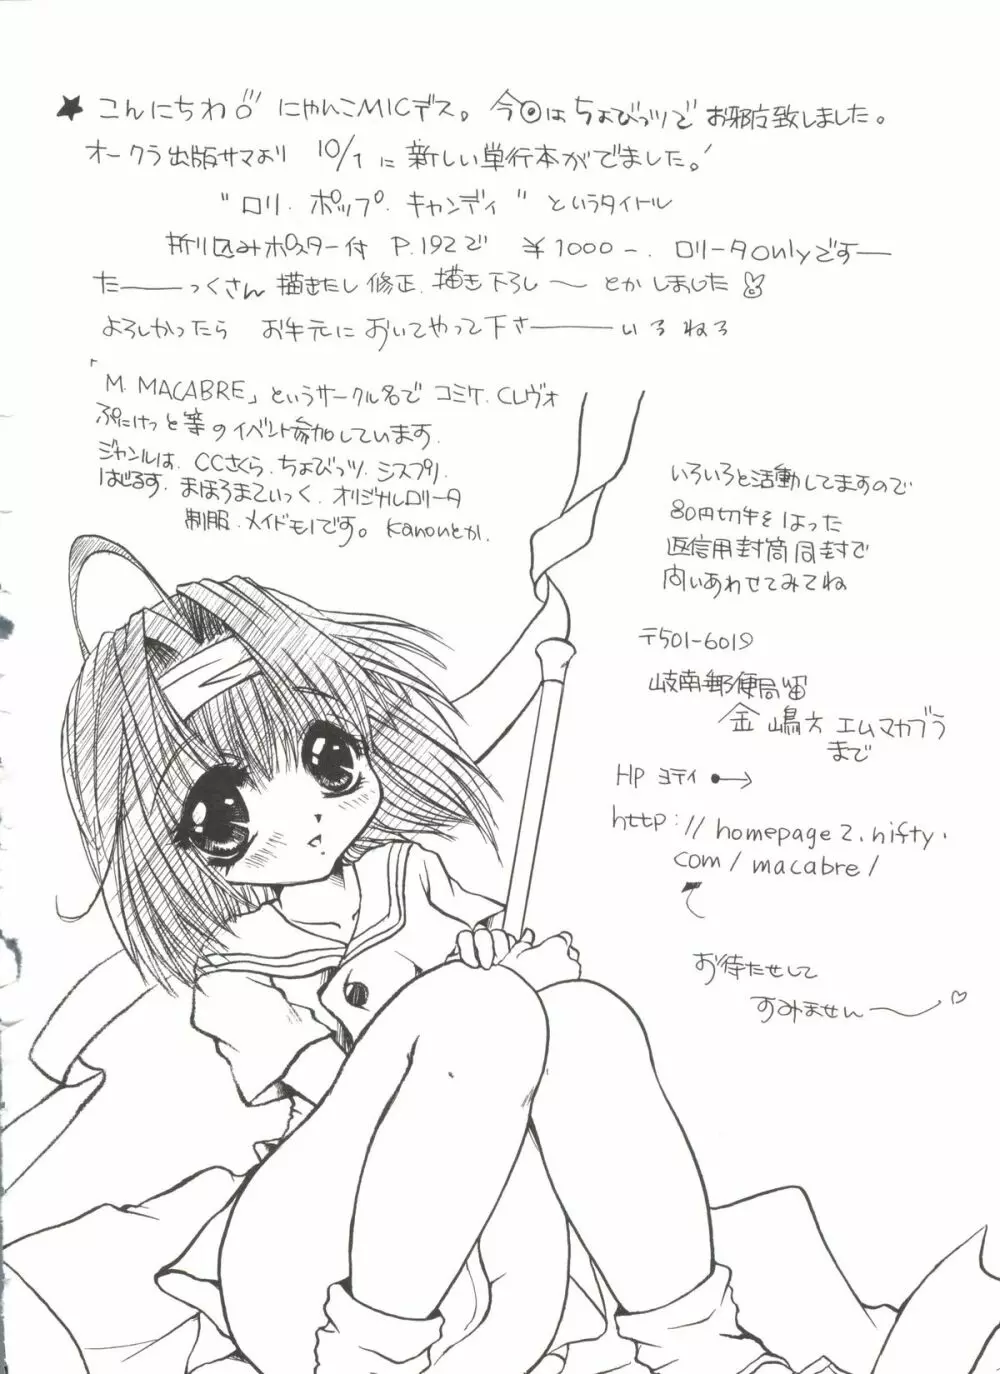 ★ こんにちわ にゃんこMICデス。今回はちょびっツでお邪魔致しました。
オークラ出版サマより 10/1に新しい単行本がでました。!
"ロリ・ポップ・キャンディ" というタイトル
折り込みポスター付 P.192で ¥1000-. ロリータonlyですー
たーーっくさん 描きたし 修正、描き下ろし〜 とかしました
よろしかったら お手元においてやって下さーーいろ ねろ
「M. MACABRE」というサークル名で コミケ、CLヴォ
ぷにけっと等のイベント参加しています。
ジャンルは、CCさくら、ちょびっツ、シスプリ、
はじるす、まほろまてぃっく、オリジナルロリータ
制服・メイドモノです。Kanonとか、
いろいろと活動してますので
80円切手をはった
返信用封筒同封で
問いあわせてみてね
〒501-6019
岐南郵便局留
金嶋方 エムマカブラ
まで
HP ヨテイ ●→
http://homepage2.nifty.
com/macabre/
お待たせして
すみません〜♡